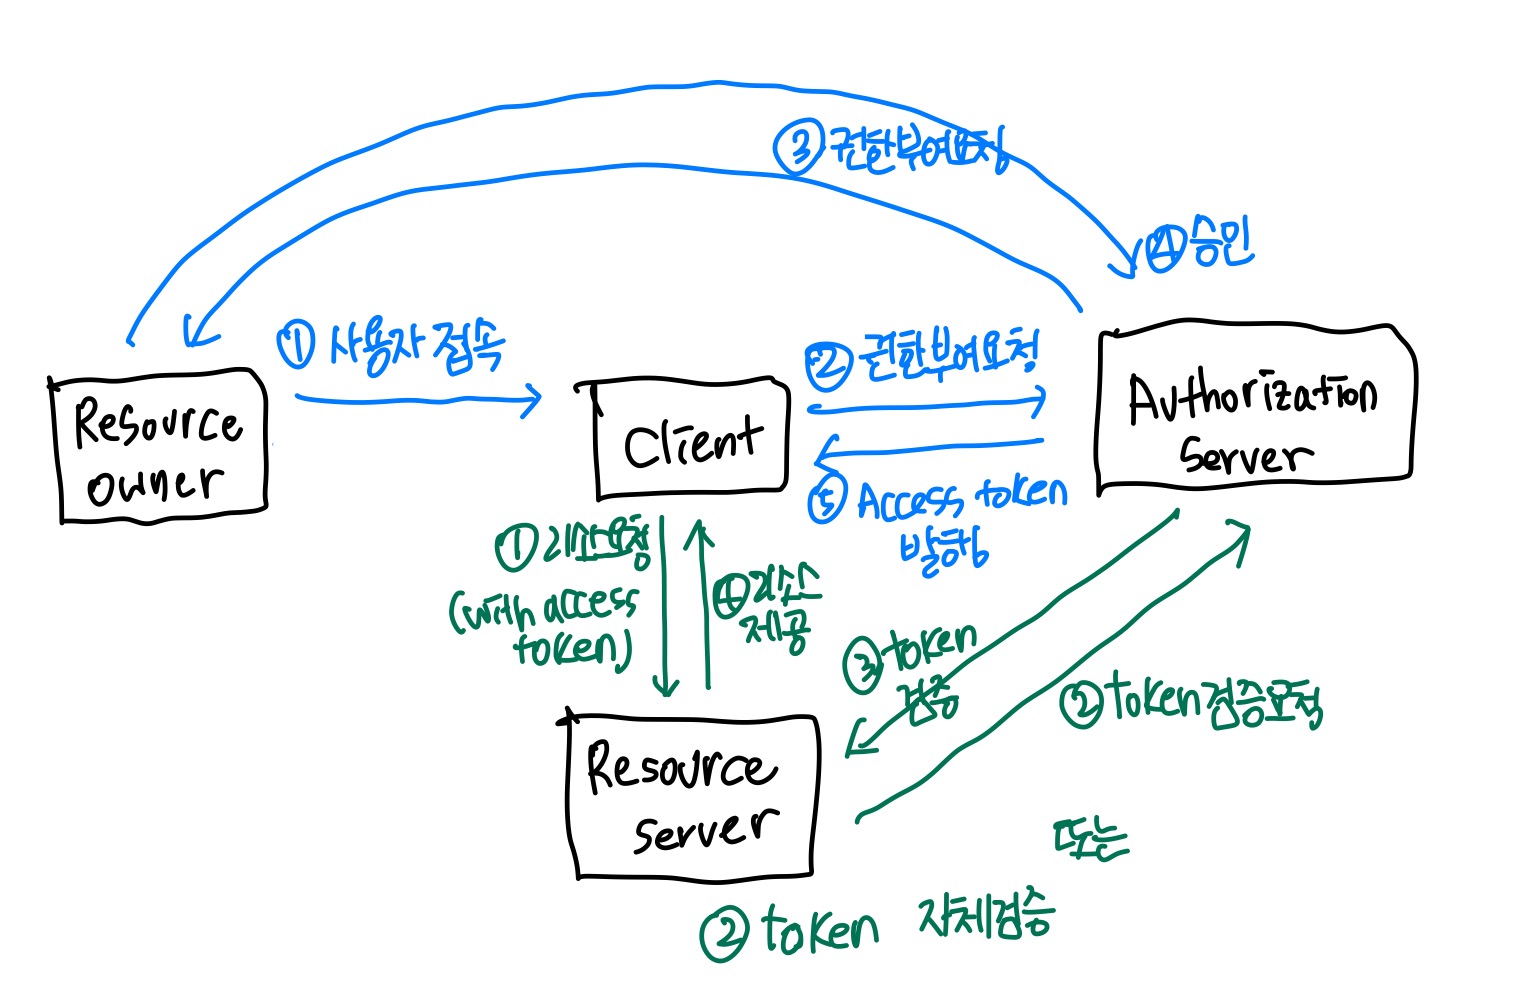 ③ 권한부여요청
④ 승인
① 사용자 접속
② 권한부여요청
Resource
owner
Client
Authorization
Server
⑤ Access token
발행
① 리소스요청
(with access
token)
④ 리소스
제공
③ token
검증
② token 검증요청
Resource
server
또는
② token 자체검증